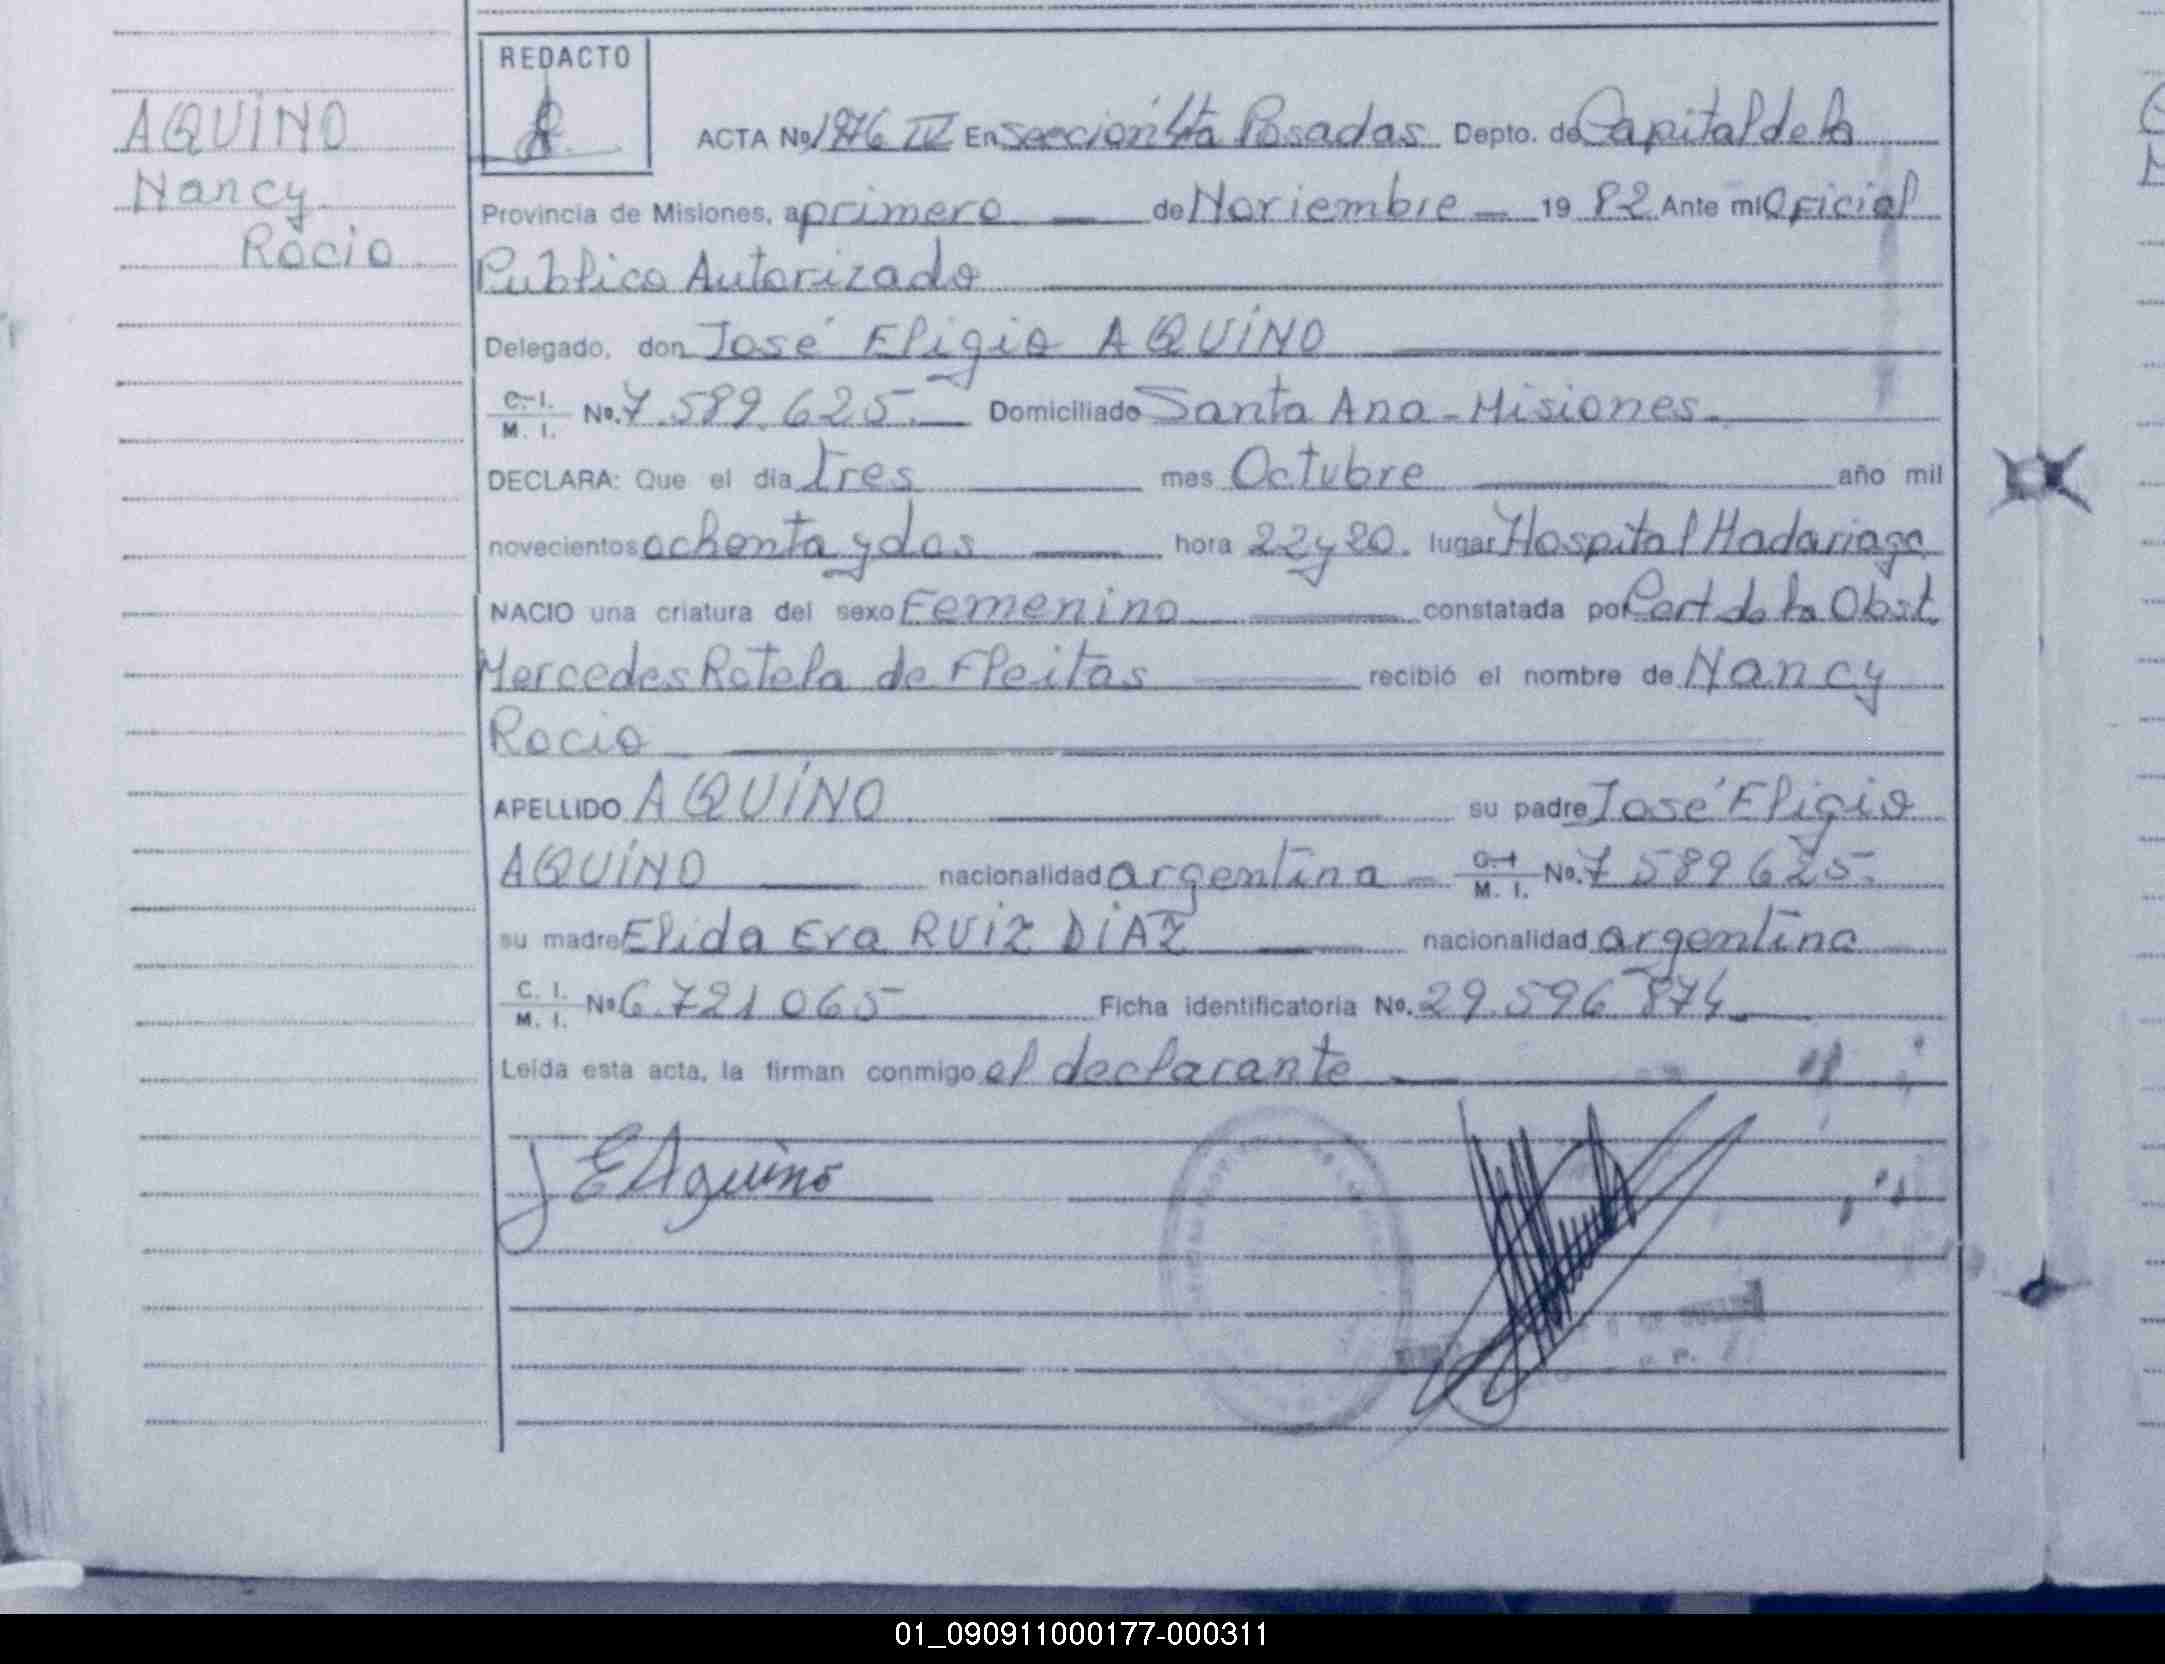 AQUINO
Nancy
Rocio
REDACTO
ACTA Nº 1876 IV En sección 4ta Posadas Depto. de Capital de la
Provincia de Misiones, a primero de Noviembre 19 82 Ante mi Oficial
Publico Autorizado
Delegado, don José Eligio AQUINO
C. I. / M. I. No. 7.589.625. Domiciliado Santa Ana - Misiones.
DECLARA: Que el día tres mes Octubre año mil
novecientos ochenta y dos hora 22 y 20. lugar Hospital Madariaga
NACIO una criatura del sexo Femenino constatada por Cert de la Obst.
Mercedes Rotela de Fleitas recibió el nombre de Nancy
Rocio
APELLIDO AQUINO su padre José Eligio
AQUINO nacionalidad argentina C. I. / M. I. No. 7.589.625.
su madre Elida Eva RUIZ DIAZ nacionalidad argentina
C. I. / M. I. No 6.721.065 Ficha identificatoria No. 29.596.874
Leída esta acta, la firman conmigo el declarante
J E Aquino
01_090911000177-000311